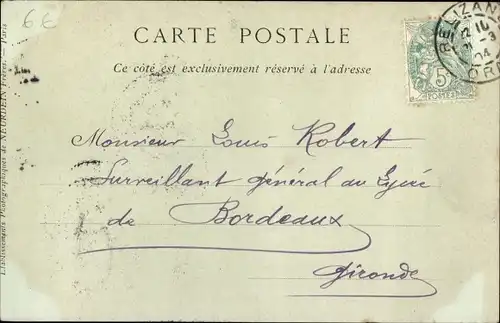 6€
CARTE POSTALE
Ce côté est exclusivement réservé à l'adresse
RELIZANE
04
ORAN
5
POSTES
Monsieur Louis Robert
Surveillant général au Lycée
de Bordeaux
Gironde
Etablissements Photographiques de NEURDEIN Frères. - Paris